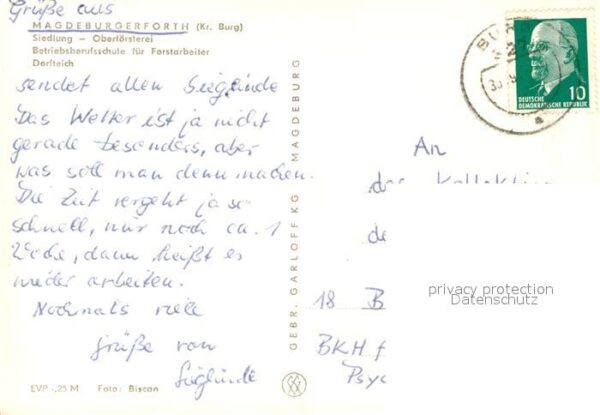 Grüße aus
MAGDEBURGERFORTH (Kr. Burg)
Siedlung – Oberförsterei
Betriebsberufsschule für Forstarbeiter
Dorfteich
sendet allen Sieglinde
Das Wetter ist ja nicht
gerade besonders, aber
was soll man denn machen.
Die Zeit vergeht ja so
schnell, nur noch ca. 1
Woche, dann heißt es
wieder arbeiten.
Nochmals viele
Grüße von
Sieglinde
EVP -,25 M Foto: Biscan
GEBR. GARLOFF KG MAGDEBURG
BU
10
DEUTSCHE
DEMOKRATISCHE REPUBLIK
An
de
18 B
BKH f
Psyc
privacy protection
Datenschutz